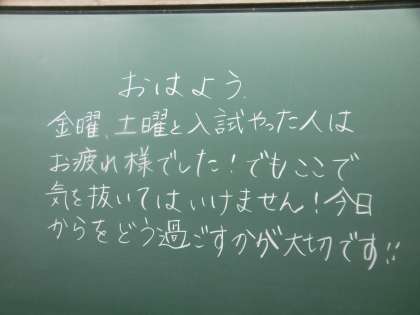 おはよう.
金曜、土曜と入試やった人は
お疲れ様でした！でもここで
気を抜いてはいけません！今日
からをどう過ごすかが大切です!!